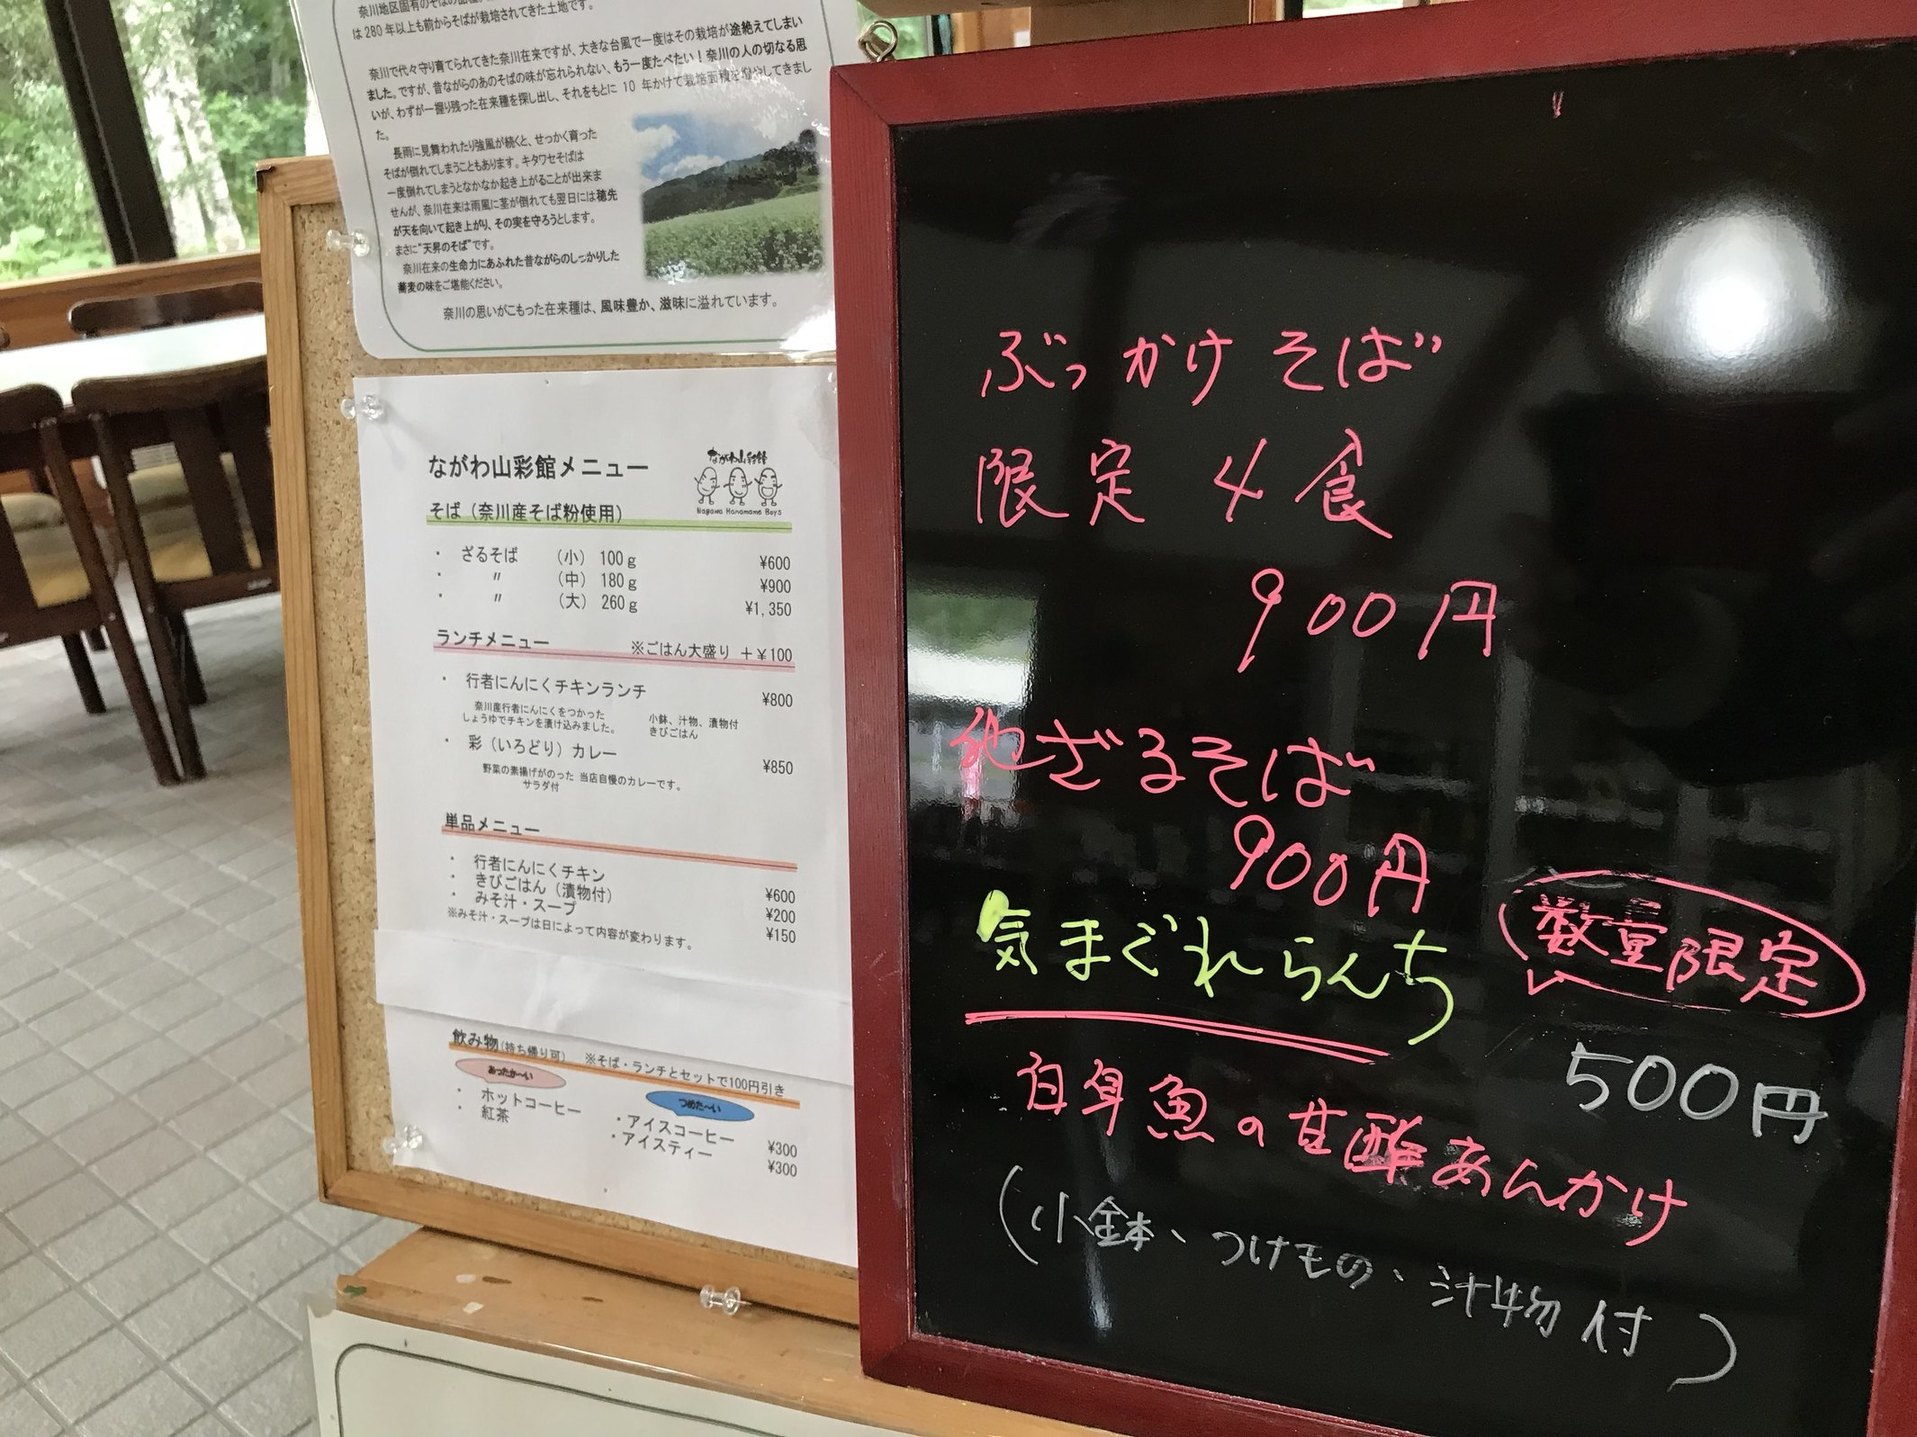 奈川地区固有のそばの品種
は280年以上も前からそばが栽培されてきた土地です。
奈川で代々守り育てられてきた奈川在来ですが、大きな台風で一度はその栽培が途絶えてしまい
ました。ですが、昔ながらのあのそばの味が忘れられない、もう一度たべたい！奈川の人の切なる思
いが、わずか一握り残った在来種を探し出し、それをもとに 10 年かけて栽培面積を増やしてきまし
た。
長雨に見舞われたり強風が続くと、せっかく育った
そばが倒れてしまうこともあります。キタワセそばは
一度倒れてしまうとなかなか起き上がることが出来ま
せんが、奈川在来は雨風に茎が倒れても翌日には穂先
が天を向いて起き上がり、その実を守ろうとします。
まさに"天昇のそば"です。
奈川在来の生命力にあふれた昔ながらのしっかりした
蕎麦の味をご堪能ください。
奈川の思いがこもった在来種は、風味豊か、滋味に溢れています。
ながわ山彩館メニュー
ながわ山彩館
Nagawa Hanamame Boys
そば（奈川産そば粉使用）
・ ざるそば （小） 100g ¥600
・ 〃 （中） 180g ¥900
・ 〃 （大） 260g ¥1,350
ランチメニュー ※ごはん大盛り ＋￥100
・ 行者にんにくチキンランチ ¥800
奈川産行者にんにくをつかった
しょうゆでチキンを漬け込みました。
小鉢、汁物、漬物付
きびごはん
・ 彩（いろどり）カレー ¥850
野菜の素揚げがのった 当店自慢のカレーです。
サラダ付
単品メニュー
・ 行者にんにくチキン ¥600
・ きびごはん（漬物付） ¥200
・ みそ汁・スープ ¥150
※みそ汁・スープは日によって内容が変わります。
飲み物(持ち帰り可) ※そば・ランチとセットで100円引き
あったか～い
つめた～い
・ ホットコーヒー ・アイスコーヒー ¥300
・ 紅茶 ・アイスティー ¥300
ぶっかけそば
限定 4食
900円
ざるそば
900円
気まぐれらんち
数量限定
500円
白身魚の甘酢あんかけ
(小鉢、つけもの、汁物付)